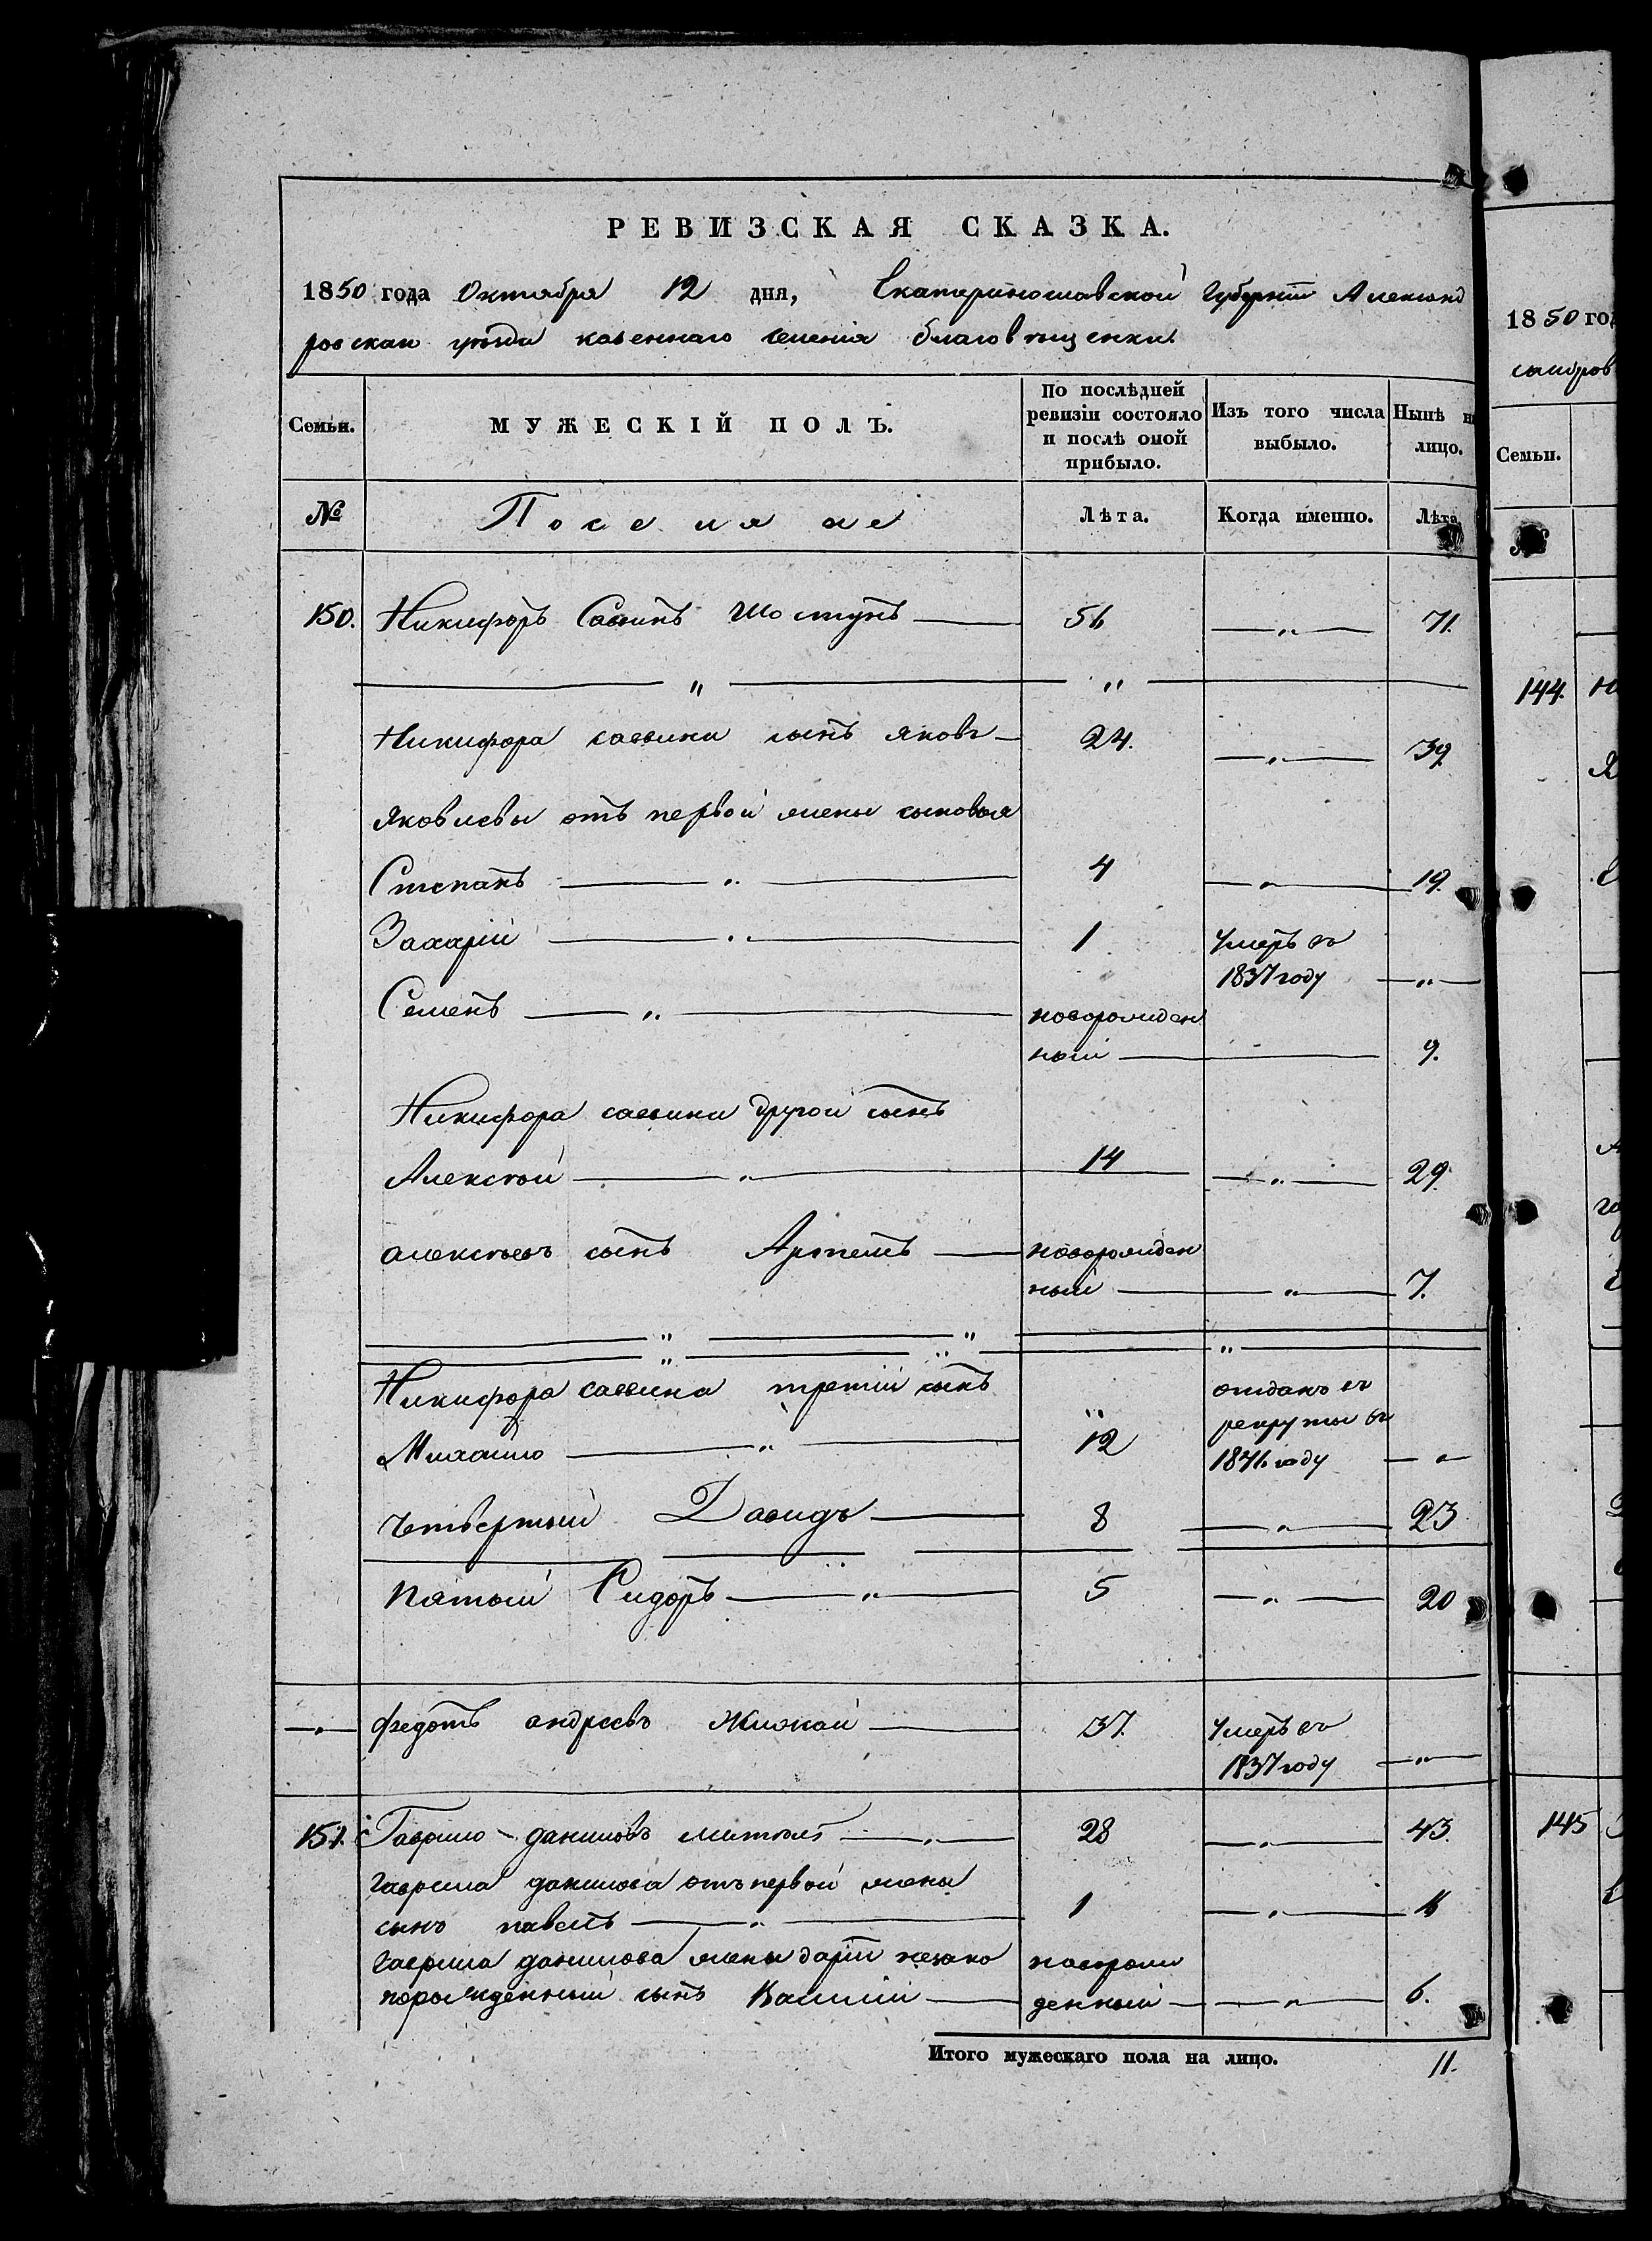 РЕВИЗСКАЯ СКАЗКА.
1850 года Октября 12 дня, Екатеринославской Губерніи Александ
ровскаи уѣзда казеннаго селенія благовѣщенки
Семьи. МУЖЕСКІЙ ПОЛЪ. По послѣдней ревизіи состояло и послѣ оной прибыло. Изъ того числа выбыло. Нынѣ на лицо.
№ Поселяне Лѣта. Когда именно. Лѣта.
150. Никифоръ Савинъ 56 71.
Никифора саввина сынъ яковъ 24. 39.
Яковлевы отъ первой жены сыновья
Степанъ 4 19.
Захарій 1 Умеръ въ
1837 году
Семенъ новорожден
ный 9.
Никифора саввина другой сынъ
Алексѣй 14 29.
алексѣевъ сынъ Артемъ новорожден
ный 7.
Никифора саввина третій сынъ отданъ въ
рекруты въ
Михайло 12 1841 году
четвертый Давидъ 8 23
пятый Сидоръ 5 20
Федотъ андреевъ 37. Умеръ въ
1837 году
151. Гаврило даниловъ 28 43.
Гаврила данилова отъ первой жены
сынъ павелъ 1 16
Гаврила данилова жены даріи незако
норожденный сынъ Василій новорож
денный 6.
Итого мужескаго пола на лицо. 11.
1850 год
сандров
Семьи.
№
144.
145